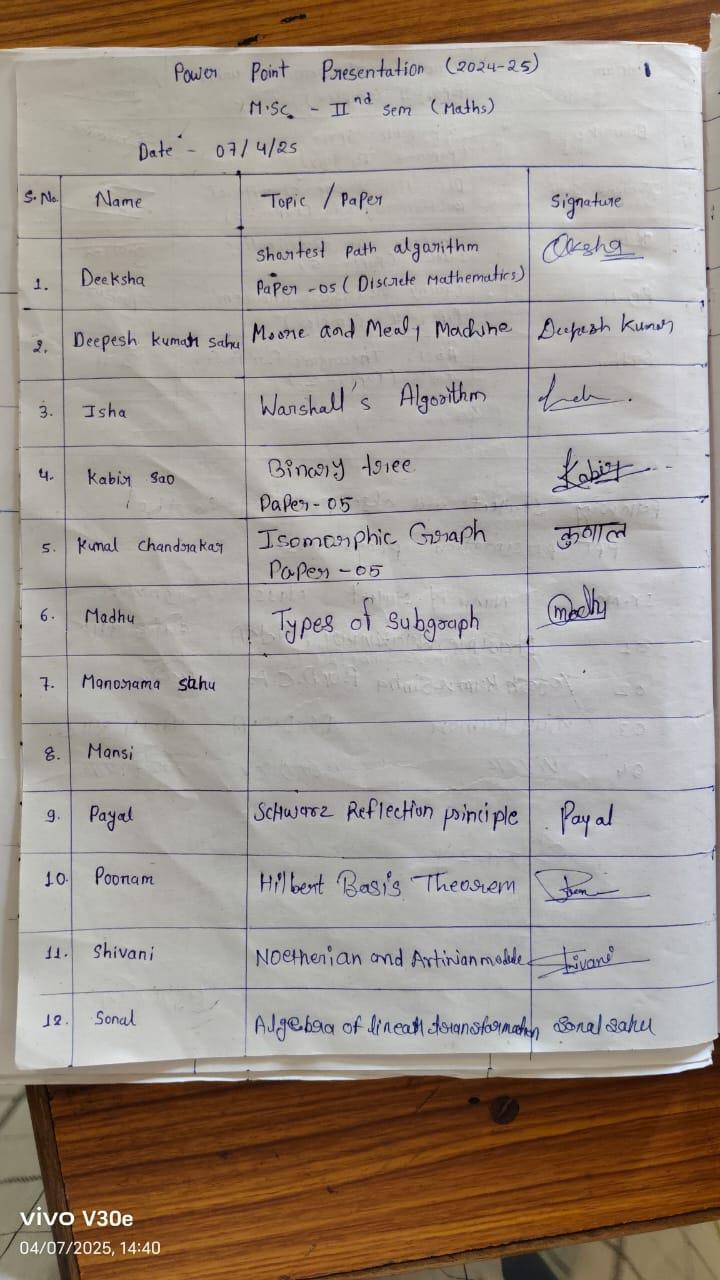 Power Point Presentation (2024-25)
M.Sc. - IInd Sem (Maths)
Date - 07/4/25
S.No. Name Topic / Paper Signature
1. Deeksha Shortest Path algarithm
Paper -05 ( Discrete Mathematics)
2. Deepesh kumar sahu Moore and Mealy Machine Deepesh Kumar
3. Isha Warshall's Algorithm
4. Kabir Sao Binary tree Kabir
Paper - 05
5. Kunal Chandrakar Isomorphic Graph कुणाल
Paper - 05
6. Madhu Types of Subgraph Madhu
7. Manorama Sahu
8. Mansi
9. Payal Schwarz Reflection principle Payal
10. Poonam Hilbert Basis Theorem
11. Shivani Noetherian and Artinian module Shivani
12. Sonal Algebra of linear transformation Sonal Sahu
vivo V30e
04/07/2025, 14:40